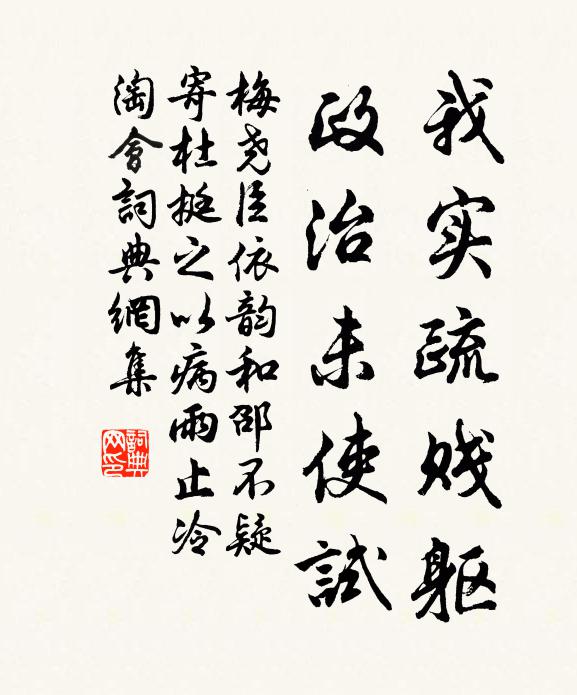 我实疏贱躯
政治未使試
梅尧臣依韵和邵不疑
寄杜挺之以病雨止冷
淘會詞典網集
詞典網印